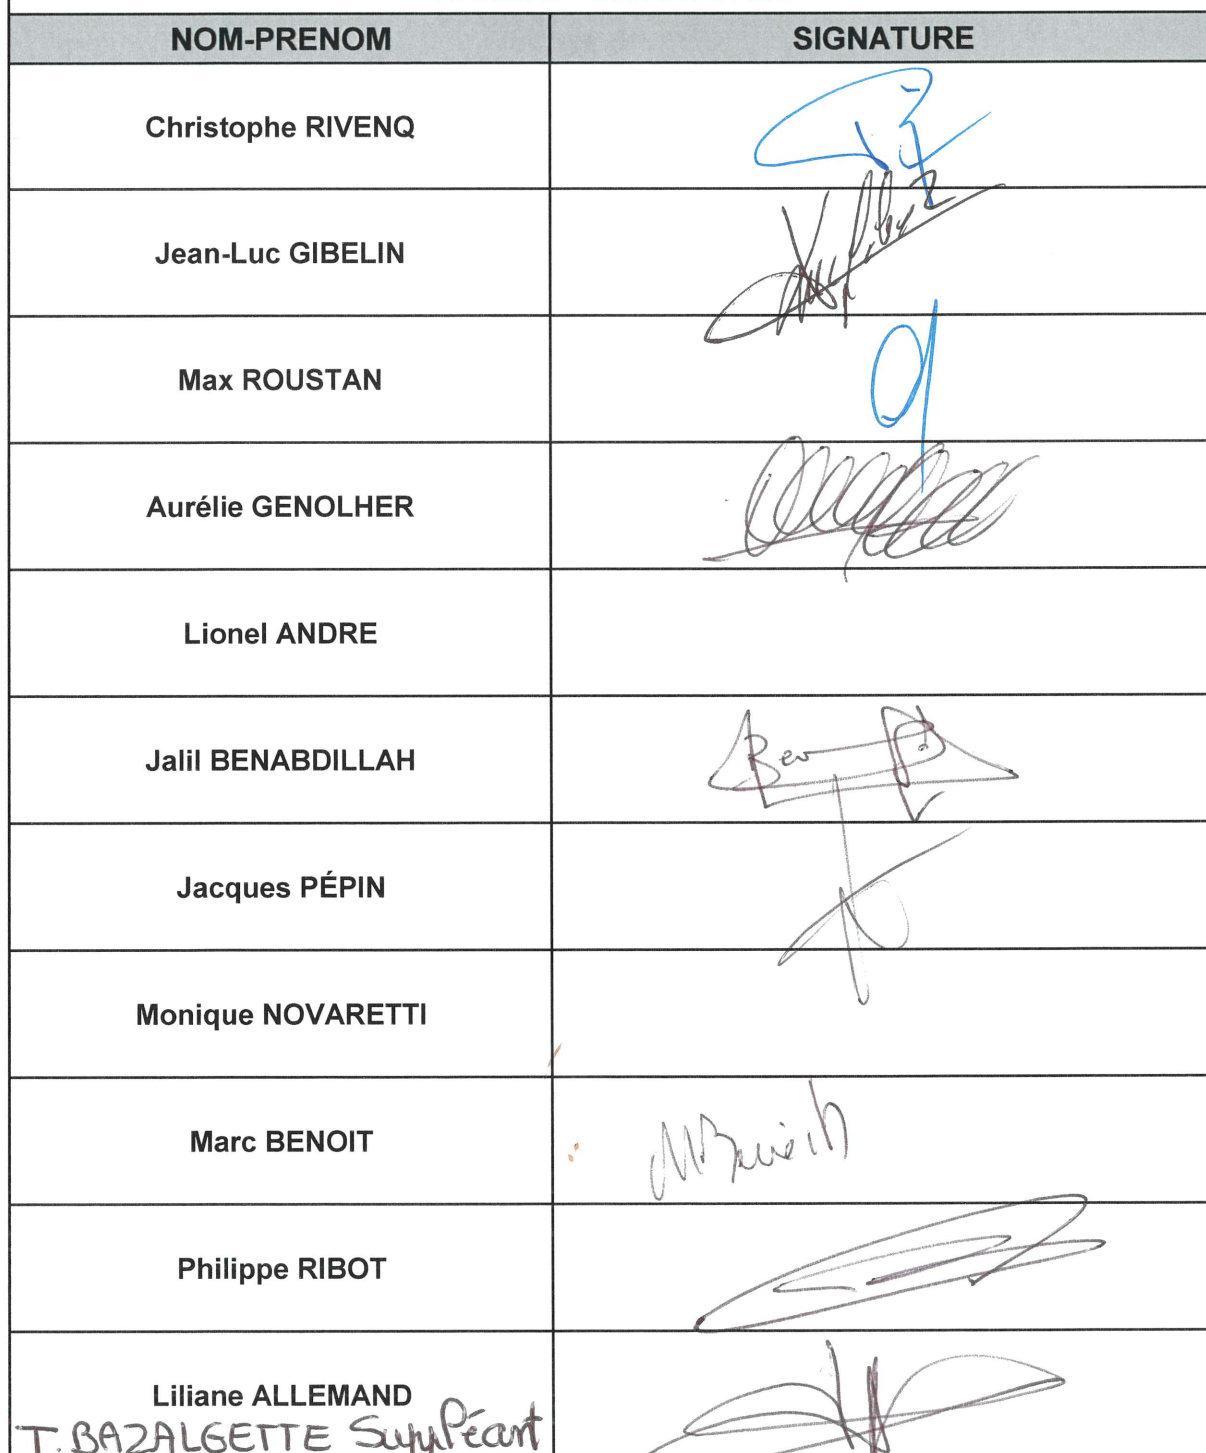 NOM-PRENOM SIGNATURE
Christophe RIVENQ
Jean-Luc GIBELIN
Max ROUSTAN
Aurélie GENOLHER
Lionel ANDRE
Jalil BENABDILLAH
Ben
Jacques PÉPIN
Monique NOVARETTI
Marc BENOIT
MBenoit
Philippe RIBOT
Liliane ALLEMAND
T. BAZALGETTE Suppléant